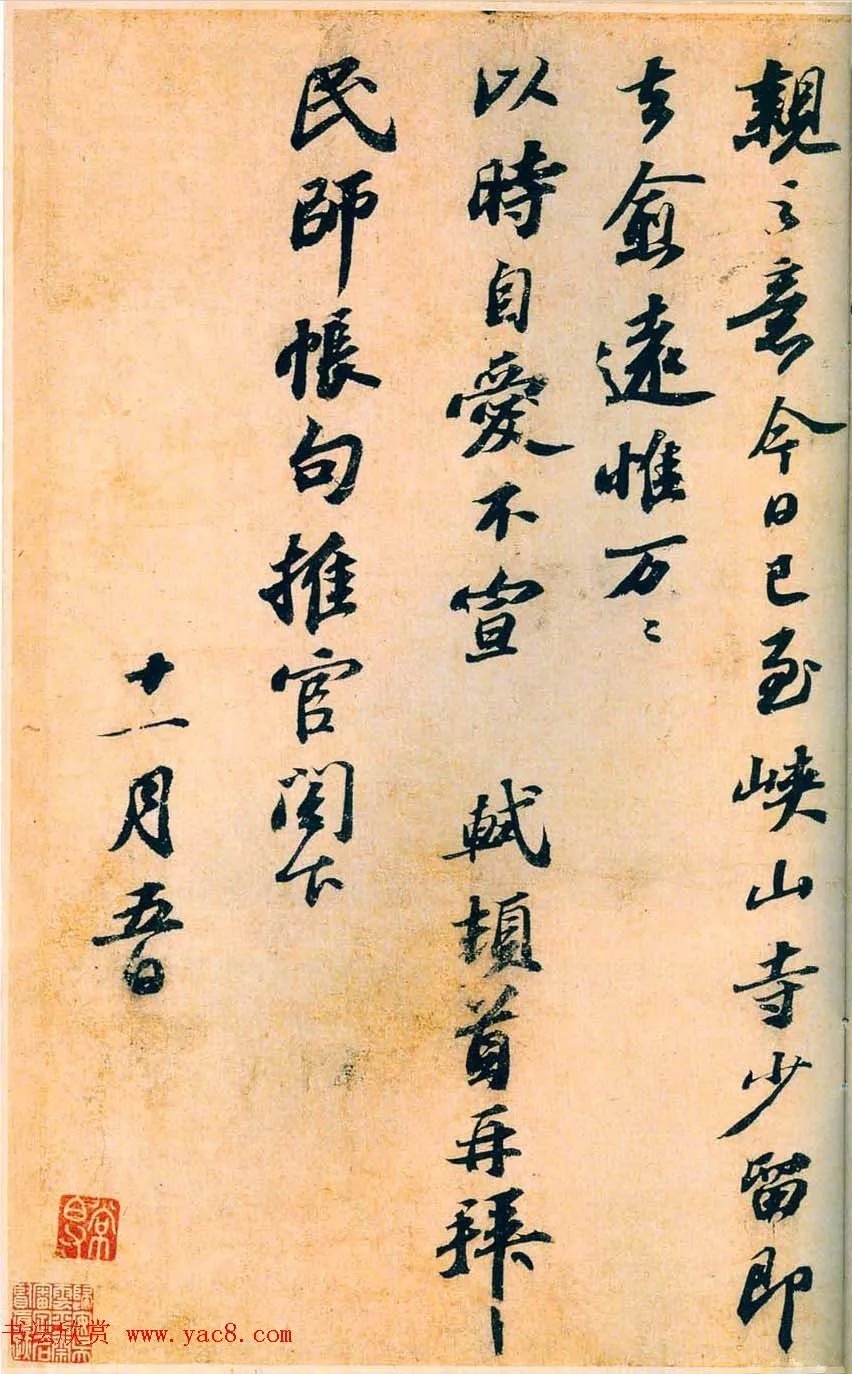 親之意今日已至峽山寺少留即
去愈遠惟万〻
以時自愛不宣 軾頓首再拜
民師帳句推官閣下
十一月五日
书法欣赏 www.yac8.com